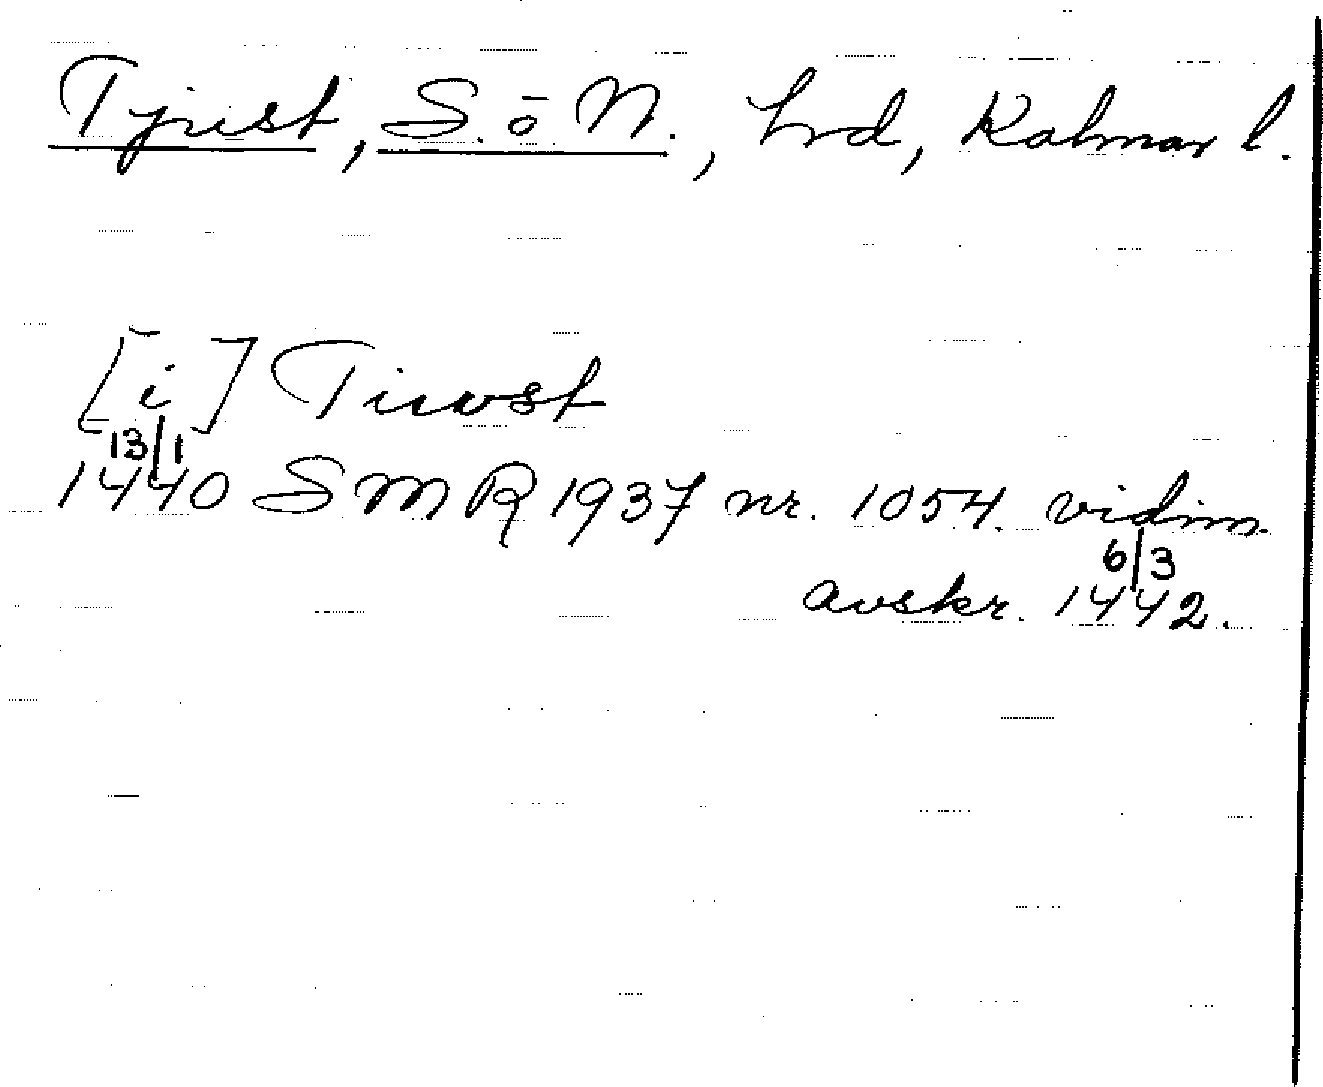 Tjust, S. o N., hrd, Kalmar l.
[i] Tiwst
13/1
1440 SMR 1937 nr. 1054. vidim.
6/3
avskr. 1442.